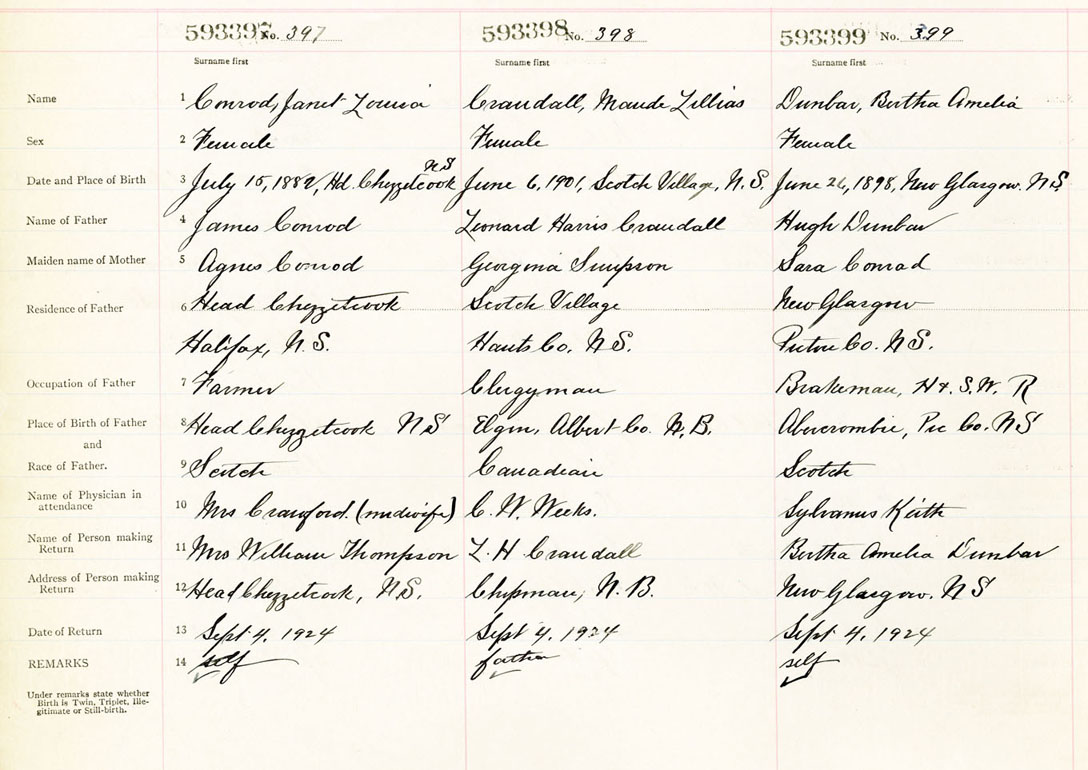 593397 No. 397 593398 No. 398 593399 No. 399
Surname first Surname first Surname first
Name 1 Conrod, Janet Louisa Crandall, Maude Lillias Dunbar, Bertha Amelia
Sex 2 Female Female Female
NS
Date and Place of Birth 3 July 15, 1882, Hd. Chezzetcook June 6, 1901, Scotch Village, N.S. June 26, 1898, New Glasgow. NS
Name of Father 4 James Conrod Leonard Harris Crandall Hugh Dunbar
Maiden name of Mother 5 Agnes Conrod Georgina Simpson Sara Conrad
Residence of Father 6 Head Chezzetcook Scotch Village New Glasgow
Halifax, N.S. Hants Co. N.S. Pictou Co. N.S.
Occupation of Father 7 Farmer Clergyman Brakeman, H & S.W. R
Place of Birth of Father 8 Head Chezzetcook NS Elgin, Albert Co. N.B. Abercrombie, Pic Co. NS
and
Race of Father. 9 Scotch Canadian Scotch
Name of Physician in
attendance 10 Mrs Crawford. (midwife) C. W. Weeks. Sylvanus Keith
Name of Person making
Return 11 Mrs William Thompson L. H Crandall Bertha Amelia Dunbar
Address of Person making
Return 12 Head Chezzetcook, N.S. Chipman, N.B. New Glasgow. NS
Date of Return 13 Sept 4. 1924 Sept 4. 1924 Sept 4. 1924
REMARKS 14 self father self
Under remarks state whether
Birth is Twin, Triplet, Ille-
gitimate or Still-birth.